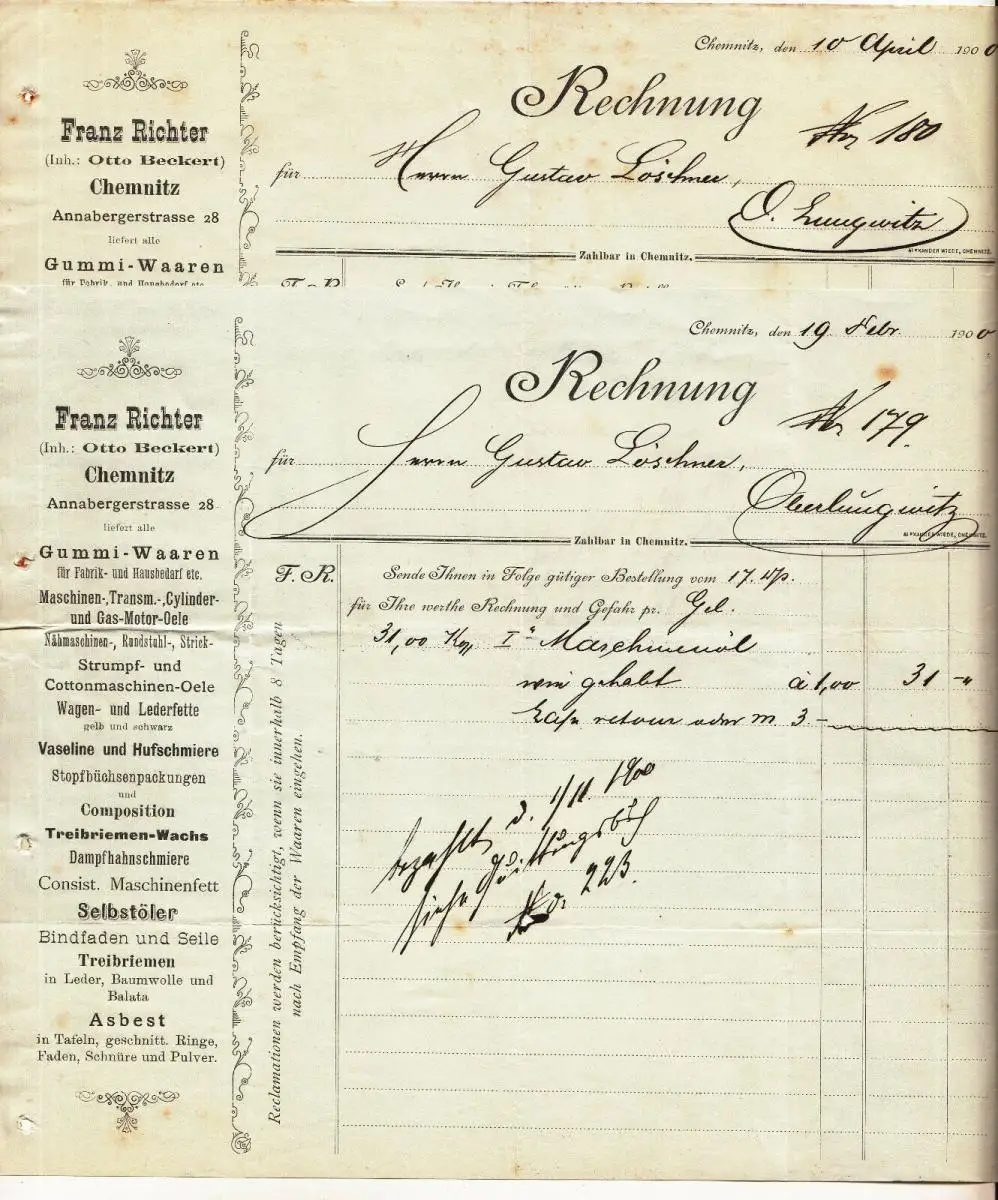 Chemnitz, den 10 April 1900
Rechnung
No 180
für Herrn Gustav Löschner,
O. Lungwitz
ALEXANDER WIEDE, CHEMNITZ.
Zahlbar in Chemnitz.
Franz Richter
(Inh.: Otto Beckert)
Chemnitz
Annabergerstrasse 28
liefert alle
Gummi-Waaren
für Fabrik- und Hausbedarf etc.
F. R.
Chemnitz, den 19 Febr. 1900
Rechnung
No 179.
für Herrn Gustav Löschner,
Oberlungwitz
ALEXANDER WIEDE, CHEMNITZ.
Zahlbar in Chemnitz.
Franz Richter
(Inh.: Otto Beckert)
Chemnitz
Annabergerstrasse 28
liefert alle
Gummi-Waaren
für Fabrik- und Hausbedarf etc.
Maschinen-,Transm.-,Cylinder-
und Gas-Motor-Oele
Nähmaschinen-, Rundstuhl-, Strick-
Strumpf- und
Cottonmaschinen-Oele
Wagen- und Lederfette
gelb und schwarz
Vaseline und Hufschmiere
Stopfbüchsenpackungen
und
Composition
Treibriemen-Wachs
Dampfhahnschmiere
Consist. Maschinenfett
Selbstöler
Bindfaden und Seile
Treibriemen
in Leder, Baumwolle und
Balata
Asbest
in Tafeln, geschnitt. Ringe,
Faden, Schnüre und Pulver.
Reclamationen werden berücksichtigt, wenn sie innerhalb 8 Tagen
nach Empfang der Waaren eingehen.
F. R.
Sende Ihnen in Folge gütiger Bestellung vom 17. d/p.
für Ihre werthe Rechnung und Gefahr pr. Gel.
31,00 Kg Iª Maschinenöl
wie gehabt à 1,00 31 -"
Fass retour oder M 3.-
bezahlt d. 1/11. 1900
siehe
No. 223.